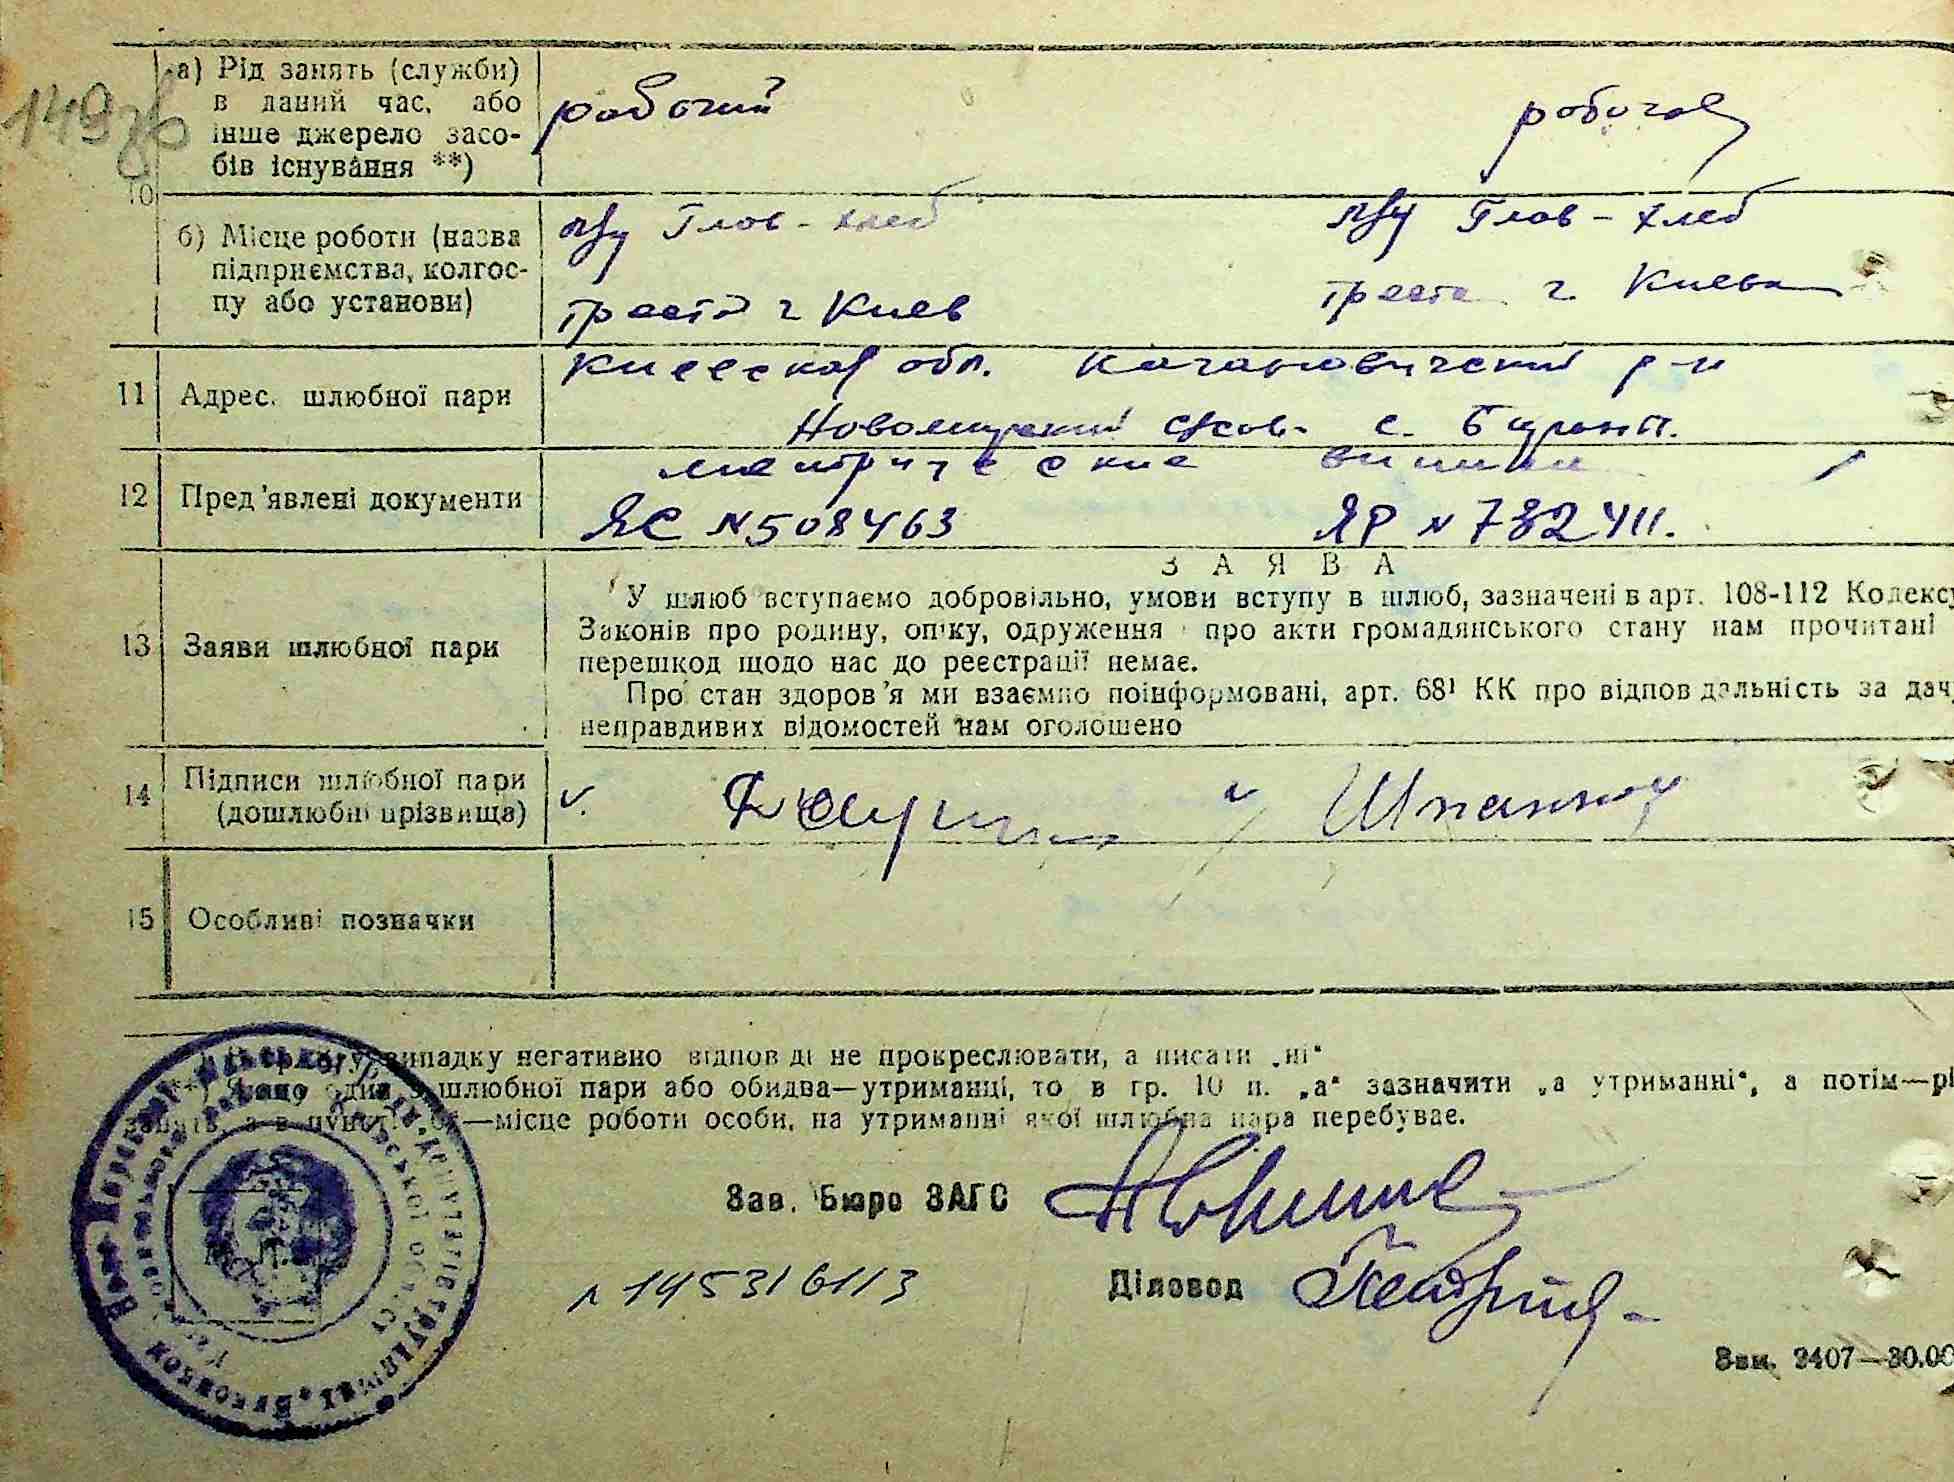 149зв
а) Рід занять (служби) в даний час, або інше джерело засобів існування **)
рабочий
робочая
10
б) Місце роботи (назва підприємства, колгоспу або установи)
п/у Глав-хлеб
треста г Киев
п/у Глав-хлеб
треста г. Киева
11 Адрес. шлюбної пари
Киевская обл. Кагановический р-н
с.
12 Пред'явлені документи
метрические
ЯС N 508463
ЯР N 732411.
ЗАЯВА
13 Заяви шлюбної пари
У шлюб вступаємо добровільно, умови вступу в шлюб, зазначені в арт. 108-112 Кодексу
Законів про родину, опіку, одруження про акти громадянського стану нам прочитані
перешкод щодо нас до реєстрації немає.
Про стан здоров'я ми взаємно поінформовані, арт. 68¹ КК про відповідальність за дач
неправдивих відомостей нам оголошено
14 Підписи шлюбної пари (дошлюбні прізвища)
15 Особливі позначки
випадку негативно відповіді не прокреслювати, а писати „ні"
**) Якщо один з шлюбної пари або обидва—утриманці, то в гр. 10 п. „а" зазначити „а утриманні", а потім—рі
занять, а в пункті „б"—місце роботи особи, на утриманні якої шлюбна пара перебуває.
Зав. Бюро ЗАГС
Діловод
Зам. 2407—30.00